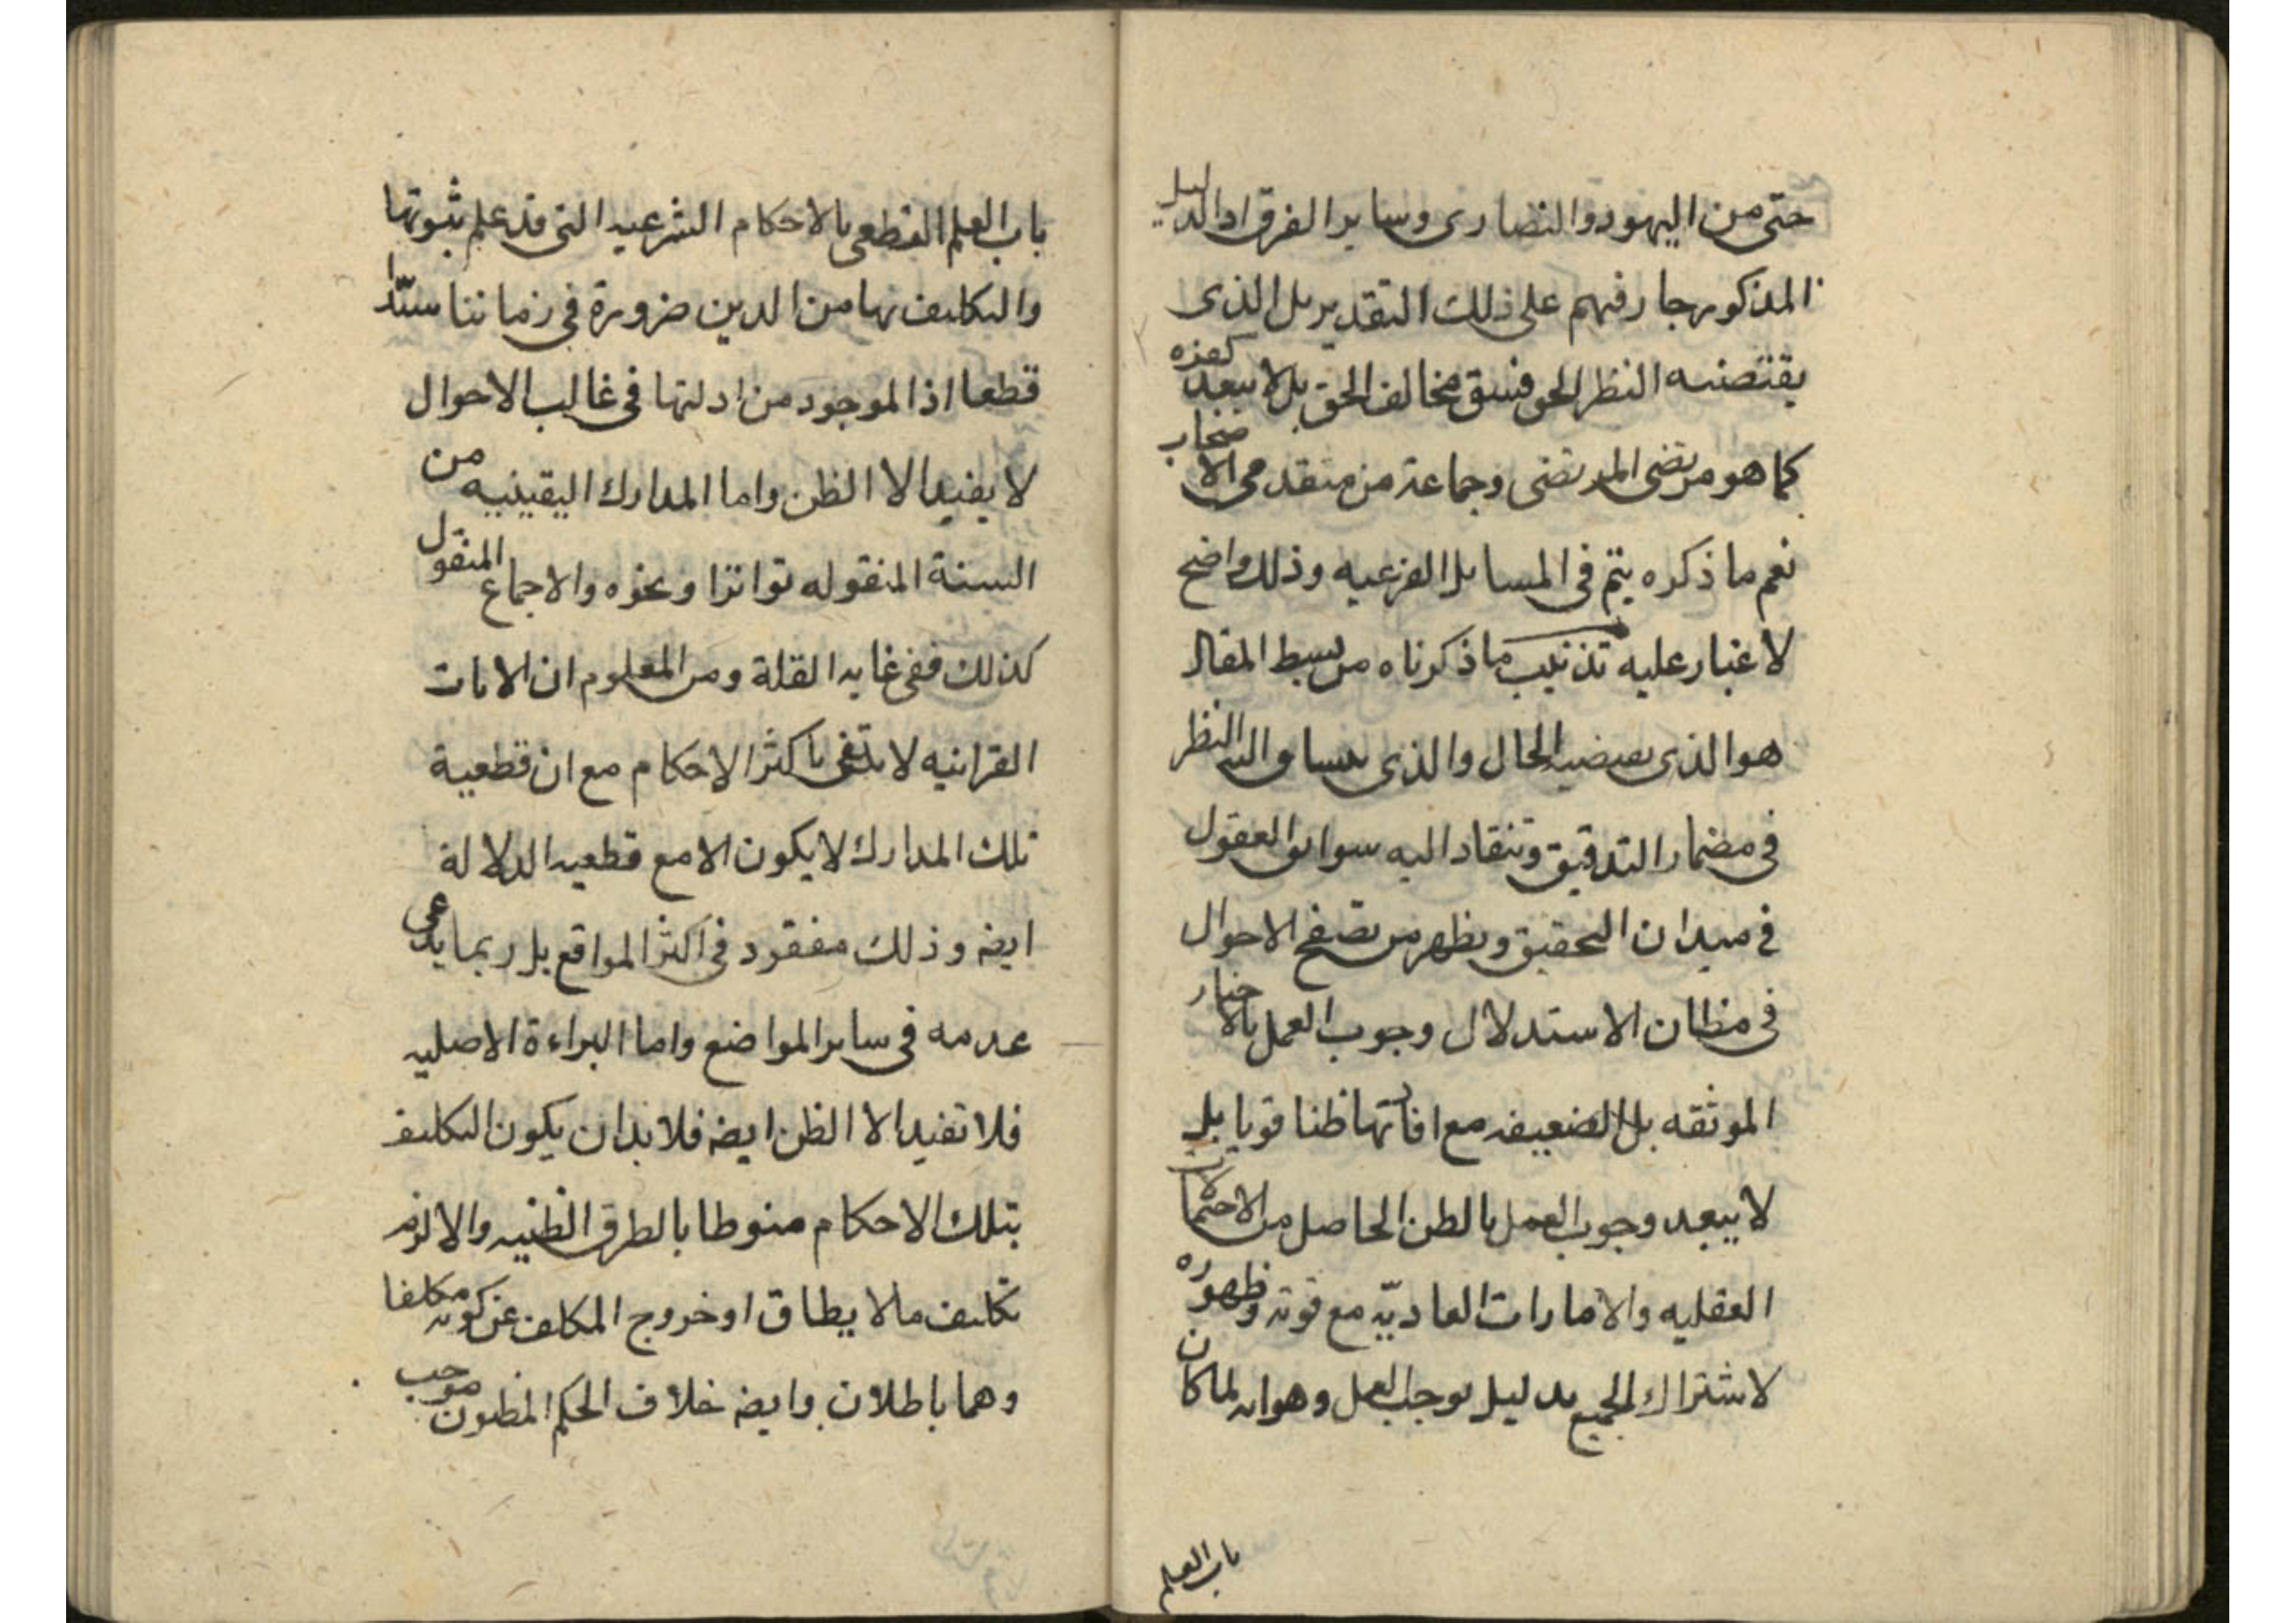 حتى من اليهود والنصارى وساير الفرق اذ الدليل
المذكور جار فيهم على ذلك التقدير بل الذى
يقتضيه النظر الحق فسق مخالف الحق بل لا يبعد كفره
كما هو مرتضى المرتضى وجماعة من متقدمى الاصحاب
نعم ما ذكره يتم فى المسايل الفرعيه وذلك واضح
لا غبار عليه تذنيب ما ذكرناه من بسط المقال
هو الذى يقتضيه الحال والذى ينساق اليه النظر
فى مضمار التدقيق وتنقاد اليه سوابق العقول
فى ميدان التحقيق ويظهر من تصفح الاحوال
فى مظان الاستدلال وجوب العمل بالاخبار
الموثقه بل الضعيفه مع افادتها ظنا قويا بل
لا يبعد وجوب العمل بالظن الحاصل من الاحتمالات
العقليه والامارات العاديّه مع قوته وظهوره
لاشتراك الجميع بدليل يوجب العمل وهو انه لما كان
باب العلم
باب العلم القطعى بالاحكام الشرعيه التى قد علم ثبوتها
والتكليف بها من الدين ضرورة فى زماننا منسدّا
قطعا اذ الموجود من ادلتها فى غالب الاحوال
لا يفيد الا الظن واما المدارك اليقينيه من
السنة المنقوله تواترا ونحوه والاجماع المنقول
كذلك ففى غايه القلة ومن المعلوم ان الايات
القرانيه لا تفى باكثر الاحكام مع ان قطعية
تلك المدارك لا يكون الا مع قطعيه الدلالة
ايضه وذلك مفقود فى اكثر المواقع بل ربما يدعى
عدمه فى ساير المواضع واما البراءة الاصليه
فلا تفيد الا الظن ايضه فلا بد ان يكون التكليف
بتلك الاحكام منوطا بالطرق الظنيه والا لزم
تكليف ما لا يطاق او خروج المكلف عن كونه مكلفا
وهما باطلان وايضه خلاف الحكم المظنون موجب